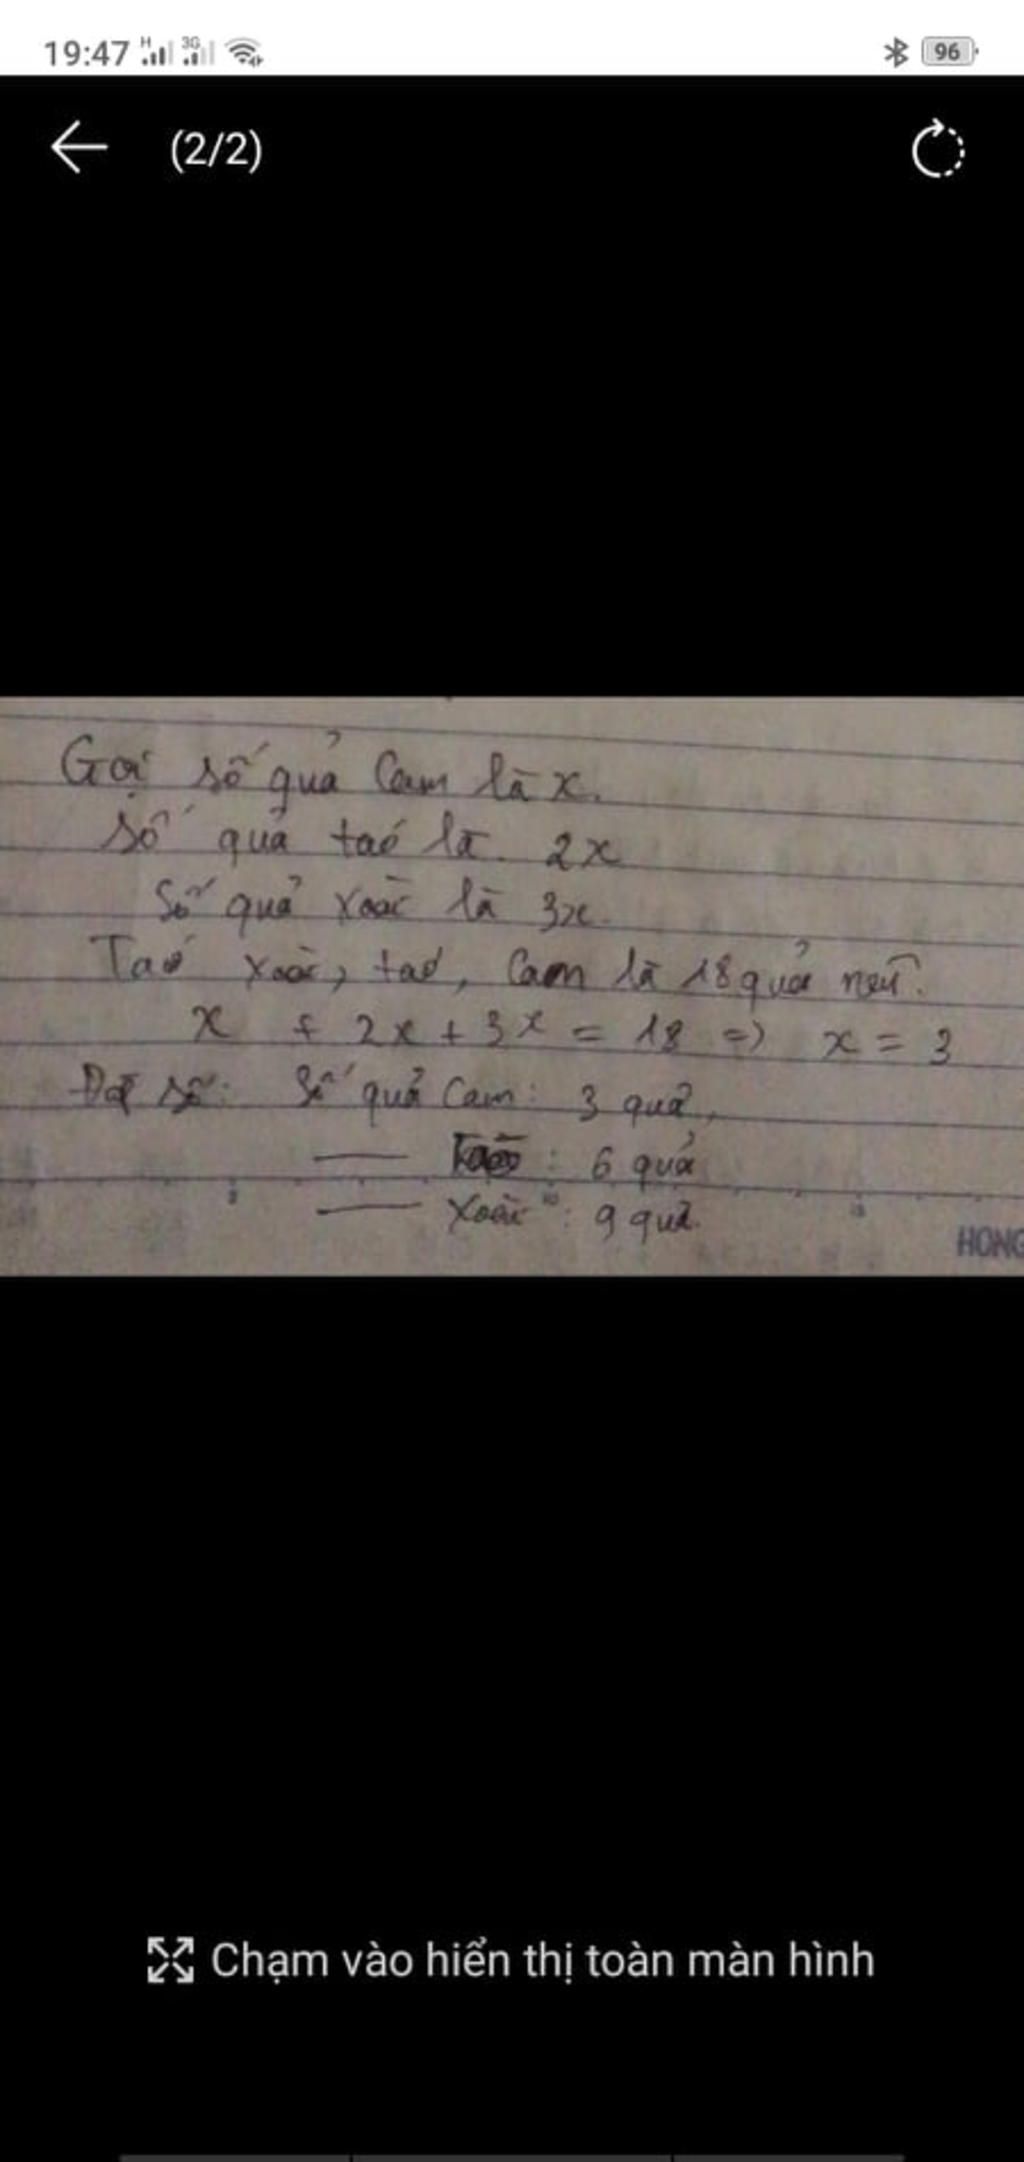 19:47 H 3G 96
(2/2)
Gọi số quả Cam là x.
Số quả táo là 2x
Số quả xoài là 3x.
xoài, táo, Cam là 18 quả nên.
x + 2x + 3x = 18 => x = 3
Đáp số: Số quả Cam: 3 quả,
Táo: 6 quả
Xoài: 9 quả.
HONG
Chạm vào hiển thị toàn màn hình